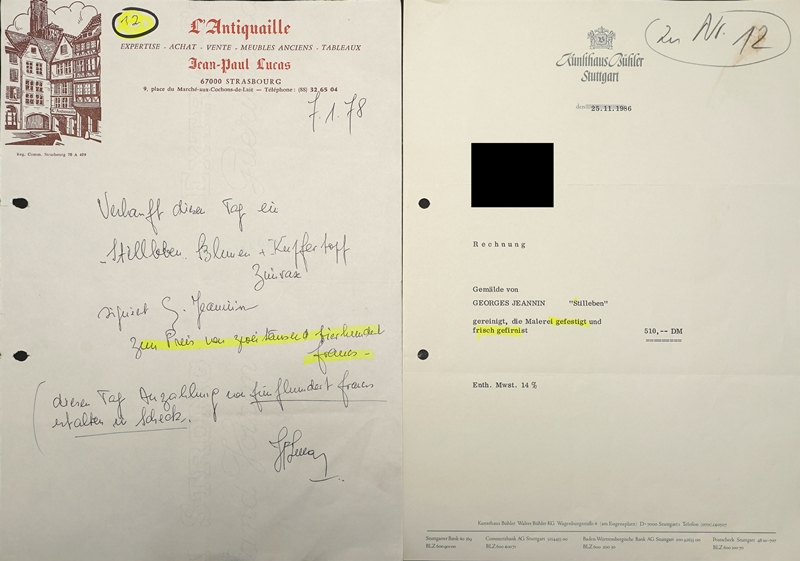 12
L'Antiquaille
EXPERTISE - ACHAT - VENTE - MEUBLES ANCIENS - TABLEAUX
Jean-Paul Lucas
67000 STRASBOURG
9, place du Marché-aux-Cochons-de-Lait — Téléphone: (88) 32 65 04
Reg. Comm. Strasbourg 78 A 459
7.1.78
Verkauft diesen Tag ein
Stillleben Blumen + Kupfertopf
signiert G. Jeannin
zum Preis von zweitausend vierhundert
francs -
(diesen Tag Anzahlung von fünfhundert francs
erhalten in Scheck.
JPLucas
Zu Nr. 12
Kunsthaus Bühler
Stuttgart
den 25.11.1986
Rechnung
Gemälde von
GEORGES JEANNIN "Stilleben"
gereinigt, die Malerei gefestigt und
frisch gefirnist 510,-- DM
Enth. Mwst. 14 %
Kunsthaus Bühler Walter Bühler KG Wagenburgstraße 4 (am Eugensplatz) D-7000 Stuttgart 1 Telefon
Stuttgarter Bank
Commerzbank AG Stuttgart
Baden-Württembergische Bank AG Stuttgart
Postscheck Stuttgart
BLZ
BLZ
BLZ
BLZ